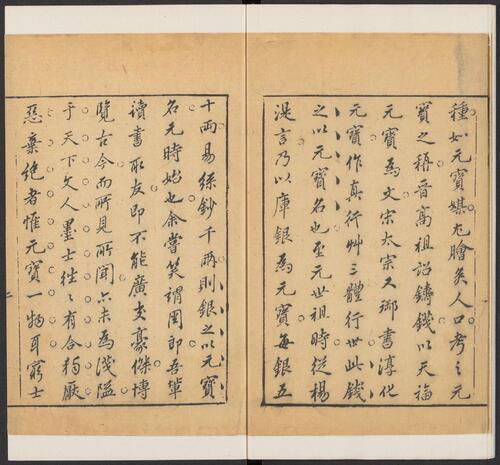 種如元寳媒尤膾炙人口考之元
寳之稱晋髙祖詔鑄錢以天福
元寳為文宋太宗又御書淳化
元寳作真行艸三體行世此錢
之以元寳名也至元世祖時從楊
湜言乃以庫銀為元寳每銀五
十兩易絲鈔千兩則銀之以元寳
名元時始也余嘗笑謂周郎吾輩
讀書取友即不能廣交豪傑博
覽古今而所見所聞亦未為淺隘
于天下文人墨士徃〻有合獨厭
惡棄絶者惟元寳一物耳窮士